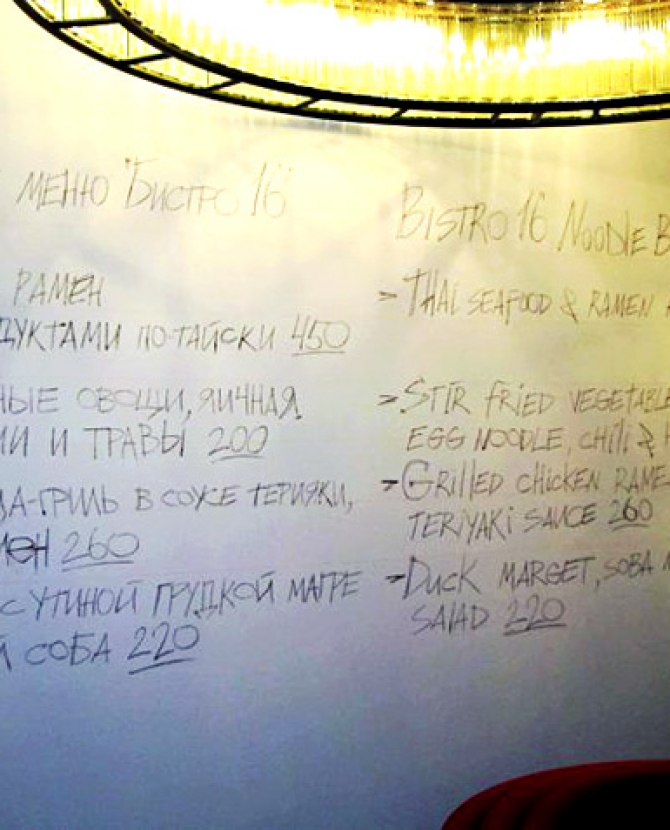 МЕНЮ "БИСТРО 16"
РАМЕН
ПО-ТАЙСКИ 450
ОВОЩИ, ЯИЧНАЯ
И ТРАВЫ 200
В СОУСЕ ТЕРИЯКИ,
260
С УТИНОЙ ГРУДКОЙ МАГРЕ
СОБА 220
BISTRO 16 NOODLE B
- THAI SEAFOOD & RAMEN
- STIR FRIED VEGETABLE
EGG NOODLE, CHILI &
- GRILLED CHICKEN RAME
TERIYAKI SAUCE 260
- DUCK MARGET, SOBA
SALAD 220